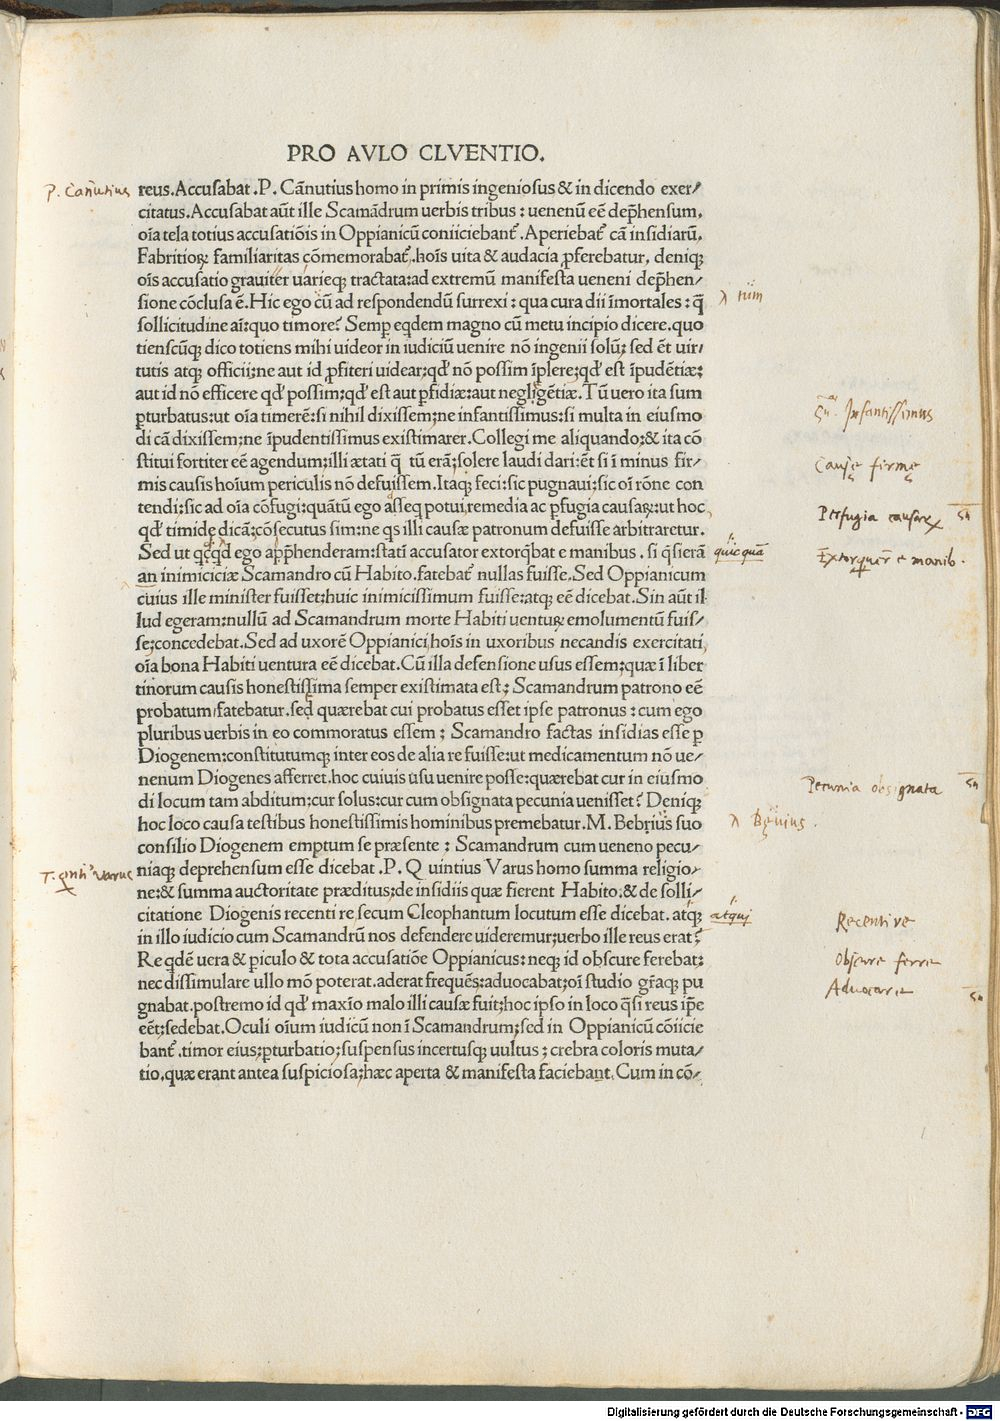 PRO AVLO CLVENTIO.
P. Cañutius
reus. Accusabat .P. Cãnutius homo in primis ingeniosus & in dicendo exer/
citatus. Accusabat aũt ille Scamãdrum uerbis tribus : uenenũ eẽ dep̃hensum.
oĩa tela totius accusatiõis in Oppianicũ coniiciebant᷑. Aperiebat᷑ cã insidiarũ.
Fabritioꝝ familiaritas cõmemorabat᷑. hoĩs uita & audacia ꝓferebatur, deniqꝫ
oĩs accusatio grauiter uarieqꝫ tractata: ad extremũ manifesta ueneni dep̃hen/
sione cõclusa ẽ. Hic ego cũ ad respondendũ surrexi : qua cura dii ĩmortales : q̃
λ tum
sollicitudine aĩ: quo timore? Semꝑ eqdem magno cũ metu incipio dicere. quo
tienscũqꝫ dico totiens mihi uideor in iudiciũ uenire nõ ingenii solũ; sed ẽt uir/
tutis atqꝫ officii; ne aut id ꝓfiteri uidear; qd' nõ possim ĩplere; qd' est ĩpudẽtiæ;
aut id nõ efficere qd' possim; qd' est aut ꝑfidiæ: aut negligẽtiæ. Tũ uero ita sum
ꝑturbatus: ut oĩa timerẽ: si nihil dixissem; ne infantissimus: si multa in eiusmo
Infantissimus
di cã dixissem; ne ĩpudentissimus existimarer. Collegi me aliquando; & ita cõ
stitui fortiter eẽ agendum; illi ætati q̃ tũ erã; solere laudi dari: ẽt si ĩ minus fir/
Causę firmę
mis causis hoĩum periculis nõ defuissem. Itaqꝫ feci: sic pugnaui; sic oĩ rõne con
tendi; sic ad oĩa cõfugi: quãtũ ego asseq potui, remedia ac ꝑfugia causaꝝ: ut hoc
Perfugia causarꝝ
qd' timide dicã; cõsecutus sim: ne qs illi causæ patronum defuisse arbitraretur.
Sed ut qcqd ego app̃henderam: statĩ accusator extorqbat e manibus. si q̃sierã
quicquã
Extorquer̃ e manib.
an inimiciciæ Scamandro cũ Habito. fatebat᷑ nullas fuisse. Sed Oppianicum
cuius ille minister fuisset: huic inimicissimum fuisse: atqꝫ eẽ dicebat. Sin aũt il
lud egeram: nullũ ad Scamandrum morte Habiti uentuꝝ emolumentũ fuis/
se; concedebat. Sed ad uxorẽ Oppianici hoĩs in uxoribus necandis exercitati
oĩa bona Habiti uentura eẽ dicebat. Cũ illa defensione usus essem; quæ ĩ liber
tinorum causis honestissima semper existimata est; Scamandrum patrono eẽ
probatum fatebatur. sed quærebat cui probatus esset ipse patronus : cum ego
pluribus uerbis in eo commoratus essem ; Scamandro factas insidias esse ꝑ
Diogenem: constitutumqꝫ inter eos de alia re fuisse: ut medicamentum nõ ue/
nenum Diogenes afferret. hoc cuiuis usu uenire posse: quærebat cur in eiusmo
di locum tam abditum; cur solus: cur cum obsignata pecunia uenisset? Deniqꝫ
Pecunia obsignata
hoc loco causa testibus honestissimis hominibus premebatur. M. Bebrius suo
consilio Diogenem emptum se præsente : Scamandrum cum ueneno pecu/
niaqꝫ deprehensum esse dicebat .P. Q uintius Varus homo summa religio/
ne: & summa auctoritate præditus; de insidiis quæ fierent Habito. & de solli/
citatione Diogenis recenti re secum Cleophantum locutum esse dicebat. atqꝫ
atqui
Recenti re
in illo iudicio cum Scamandrũ nos defendere uideremur; uerbo ille reus erat?
Re qdẽ uera & ꝑiculo & tota accusatiõe Oppianicus: neqꝫ id obscure ferebat:
Obscure ferre
nec dissimulare ullo mõ poterat. aderat frequẽs: aduocabat; oĩ studio gr̃aqꝫ pu
Aduocare
gnabat. postremo id qd' maxĩo malo illi causæ fuit; hoc ipso in loco q̃si reus ip̃e
eẽt; sedebat. Oculi oĩum iudicũ non ĩ Scamandrum; sed in Oppianicũ cõiicie
bant᷑. timor eius; ꝑturbatio; suspensus incertusqꝫ uultus ; crebra coloris muta/
tio. quæ erant antea suspiciosa; hæc aperta & manifesta faciebant. Cum in cõ/
Digitalisierung gefördert durch die Deutsche Forschungsgemeinschaft - DFG